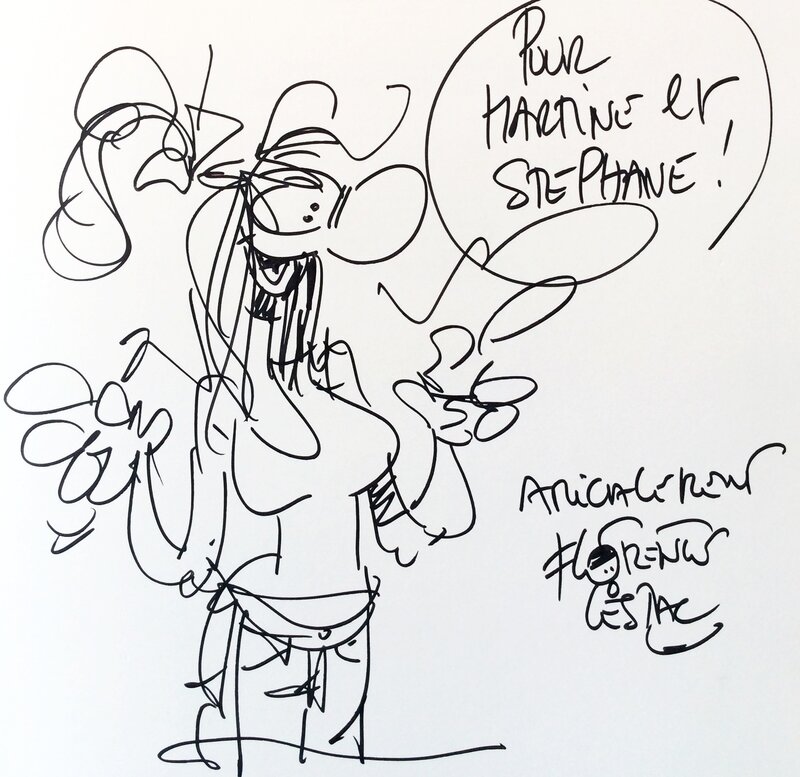 POUR
MARTINE et
STEPHANE !
AMICALEMENT
FLORENCE
CESTAC